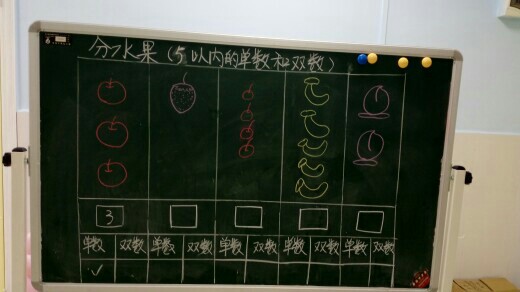 分水果(5以内的单数和双数)
3
单数 双数 单数 双数 单数 双数 单数 双数 单数 双数
✓